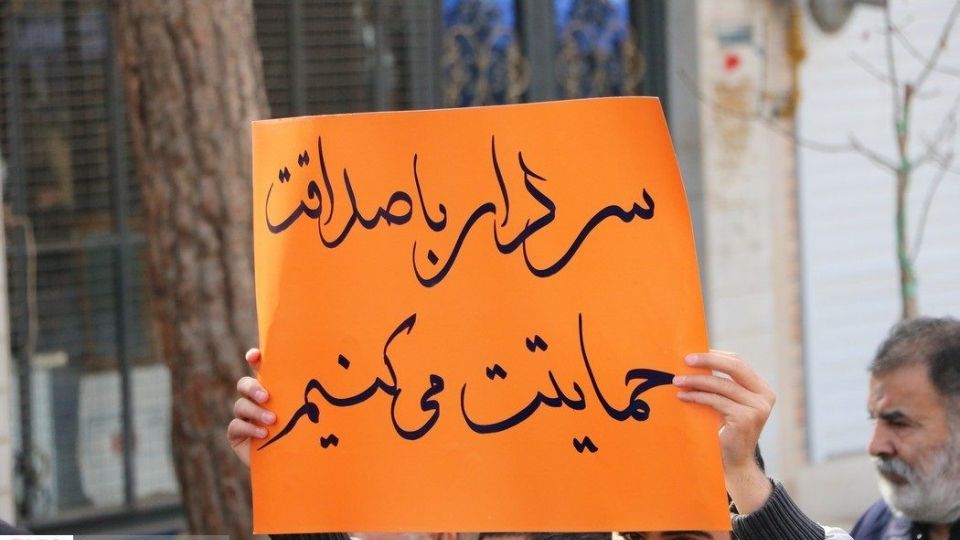 سردار با صداقت
حمایتت می‌کنیم